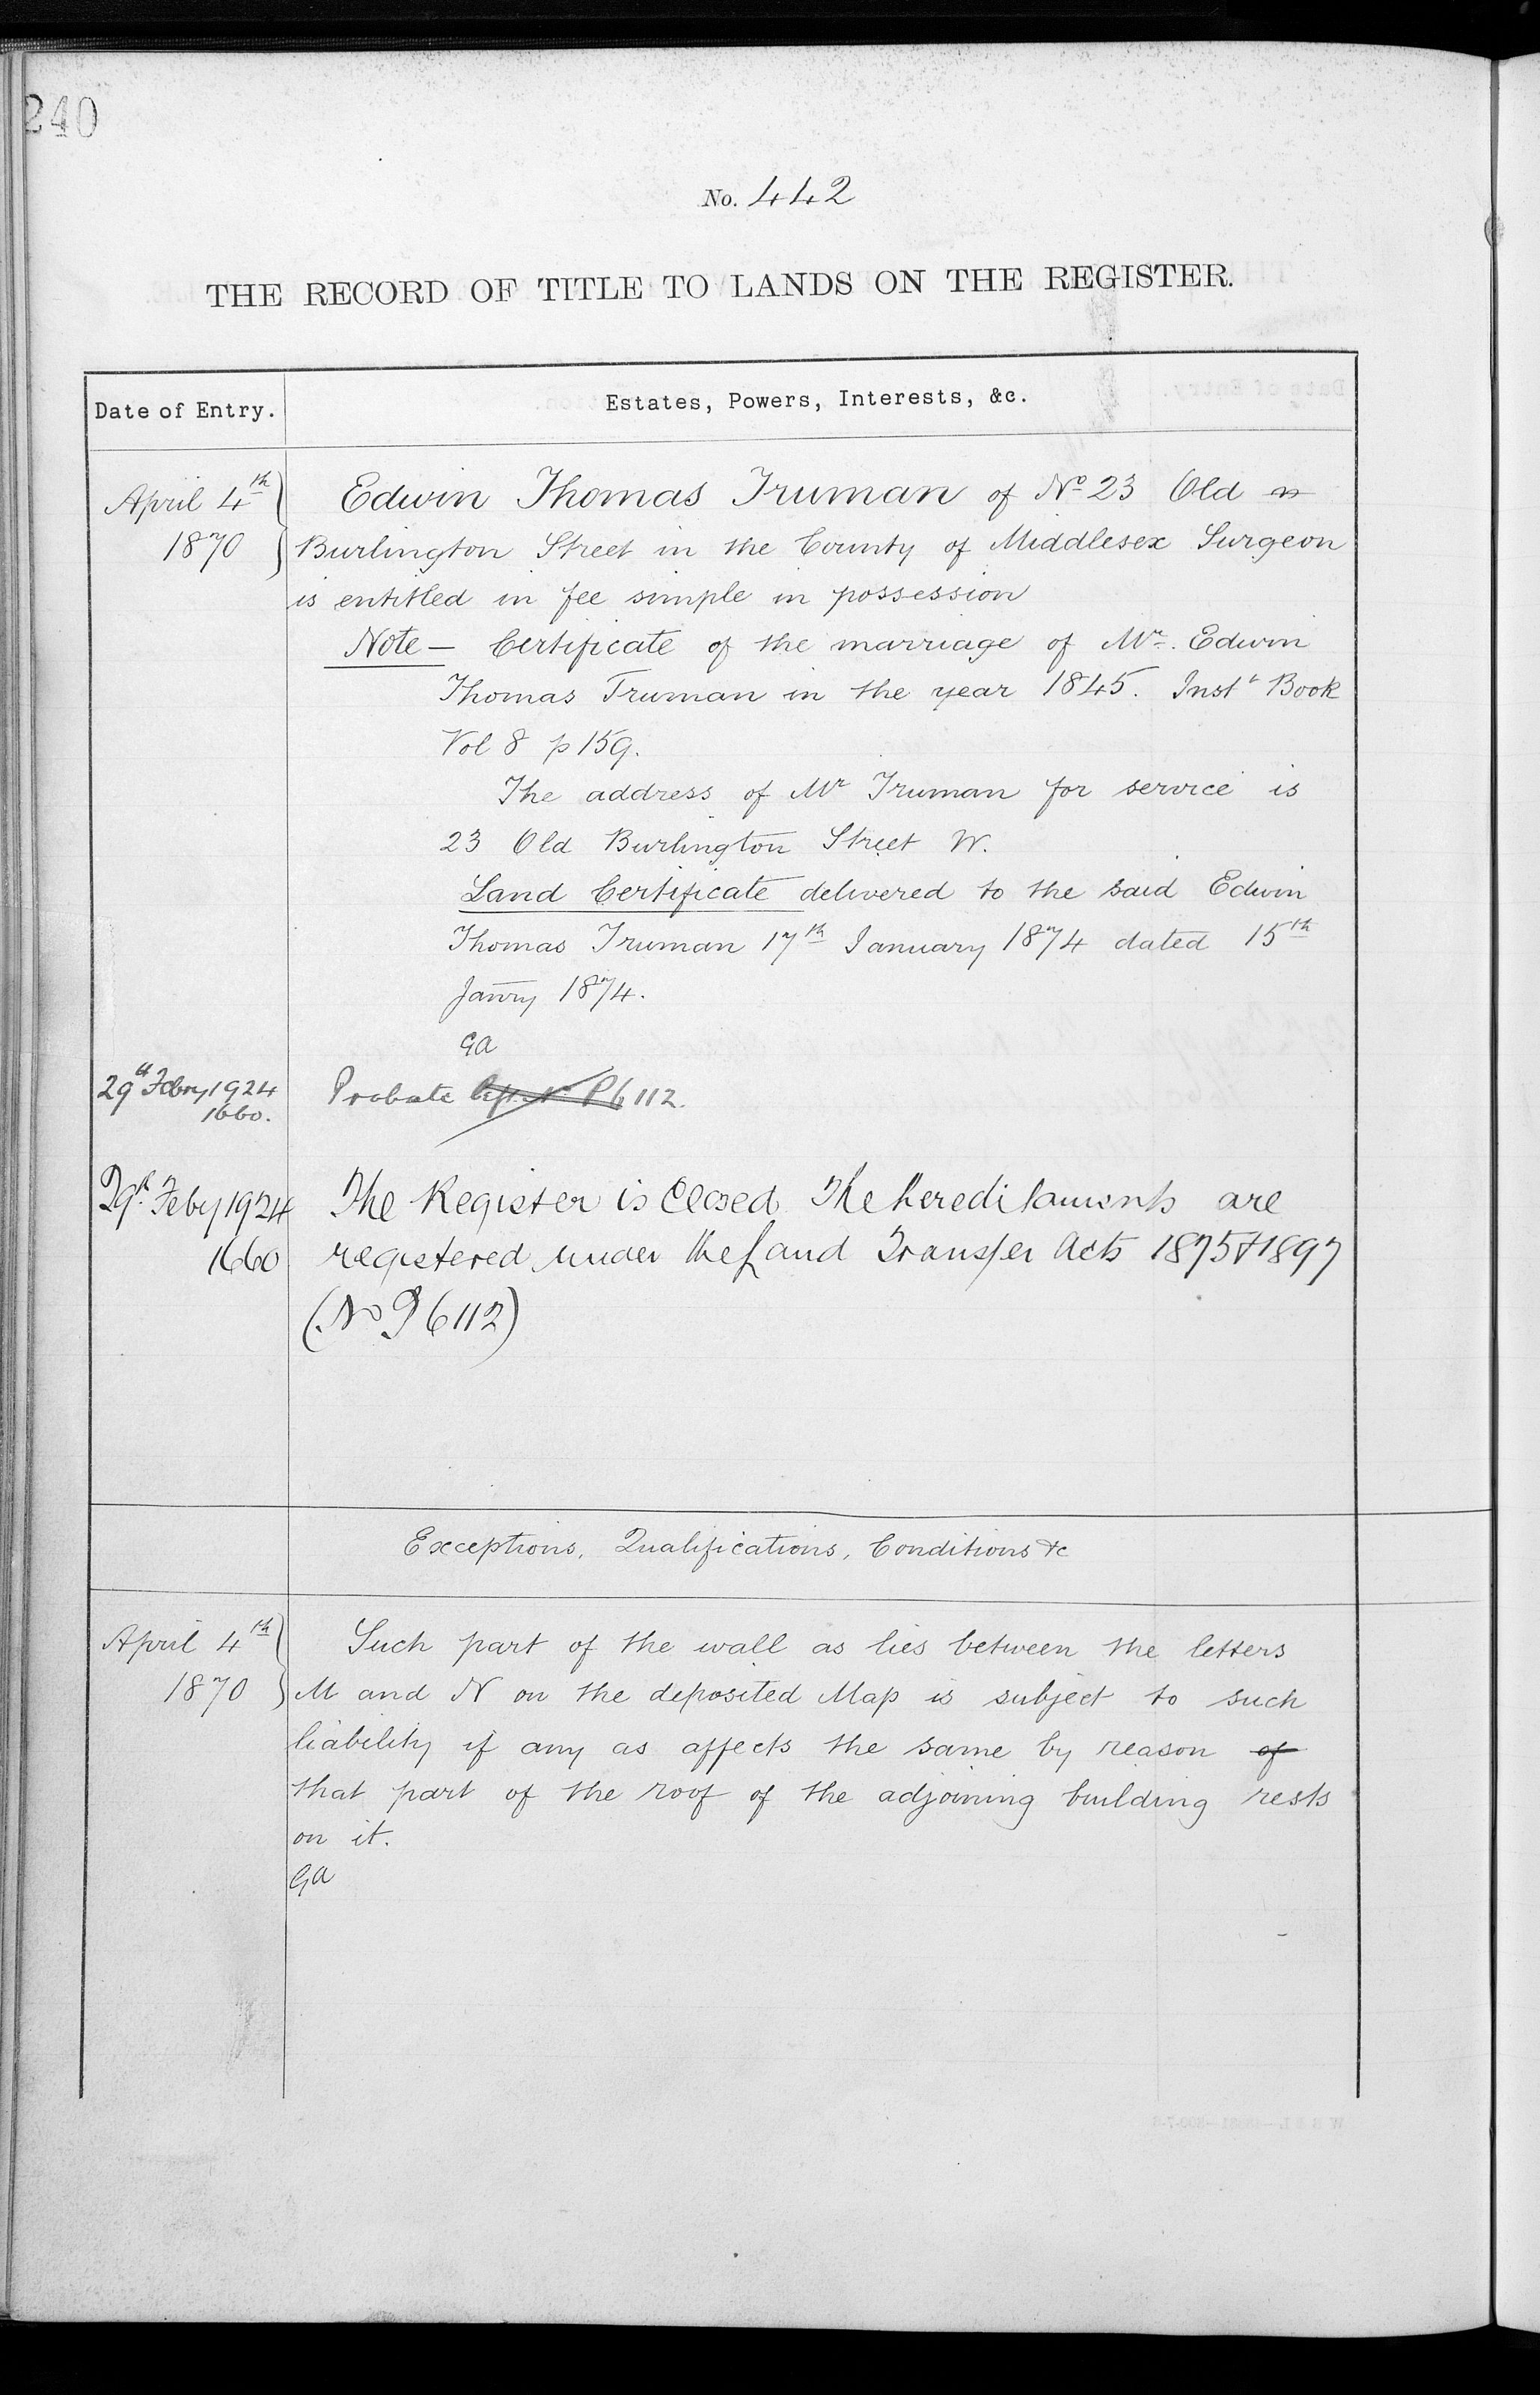 240
No. 442
THE RECORD OF TITLE TO LANDS ON THE REGISTER.
Date of Entry.
Estates, Powers, Interests, &c.
April 4th
1870
Edwin Thomas Truman of No 23 Old
Burlington Street in the County of Middlesex Surgeon
is entitled in fee simple in possession
Note — Certificate of the marriage of Mr. Edwin
Thomas Truman in the year 1845. Instt Book
Vol 8 p 159.
The address of Mr Truman for service is
23 Old Burlington Street W.
Land Certificate delivered to the said Edwin
Thomas Truman 17th January 1874 dated 15th
Janry 1874.
GA
29th Febry 1924
1660.
Probate P6112.
29th Feby 1924
1660
The Register is Closed. The hereditaments are
registered under the Land Transfer Acts 1875 & 1897
(No P6112)
Exceptions, Qualifications, Conditions &c
April 4th
1870
Such part of the wall as lies between the letters
M and N on the deposited Map is subject to such
liability if any as affects the same by reason of
that part of the roof of the adjoining building rests
on it.
GA